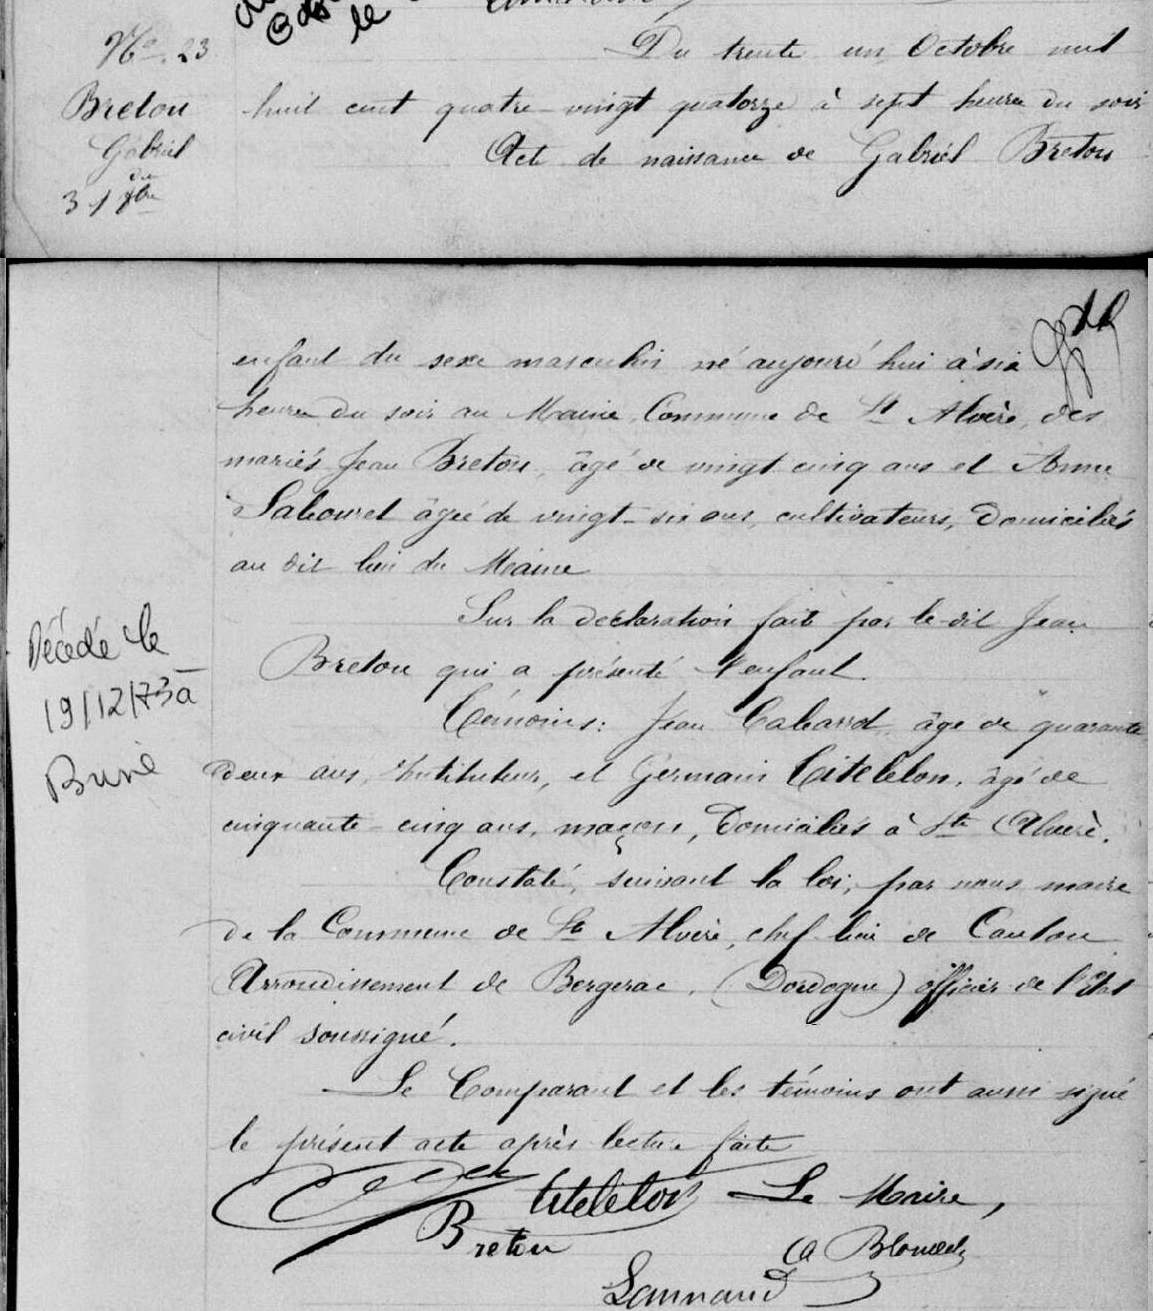 le
No. 23
Breton
Gabriel
du
31 8bre
Du trente un Octobre mil
huit cent quatre-vingt quatorze à sept heures du soir
Acte de naissance de Gabriel Breton
enfant du sexe masculin né aujourd'hui à six
heures du soir au Maine Commune de St Alvère, des
mariés Jean Breton, âgé de vingt cinq ans et Anne
Labouret âgée de vingt-six ans, cultivateurs, domiciliés
au dit lieu du Maine
Sur la déclaration faite par le dit Jean
Breton qui a présenté l'enfant.
Témoins: Jean âgé de quarante
deux ans, Instituteur, et Germain Citelelon, âgé de
cinquante-cinq ans, maçon, domiciliés à Ste Alvère.
Constaté, suivant la loi, par nous maire
de la Commune de Ste Alvère, chef-lieu de Canton
Arrondissement de Bergerac, (Dordogne) officier de l'Etat
civil soussigné.
Le Comparant et les témoins ont aussi signé
le présent acte après lecture faite
Décédé le
19/12/73 à
Citelelon Le Maire,
Breton
Blondel